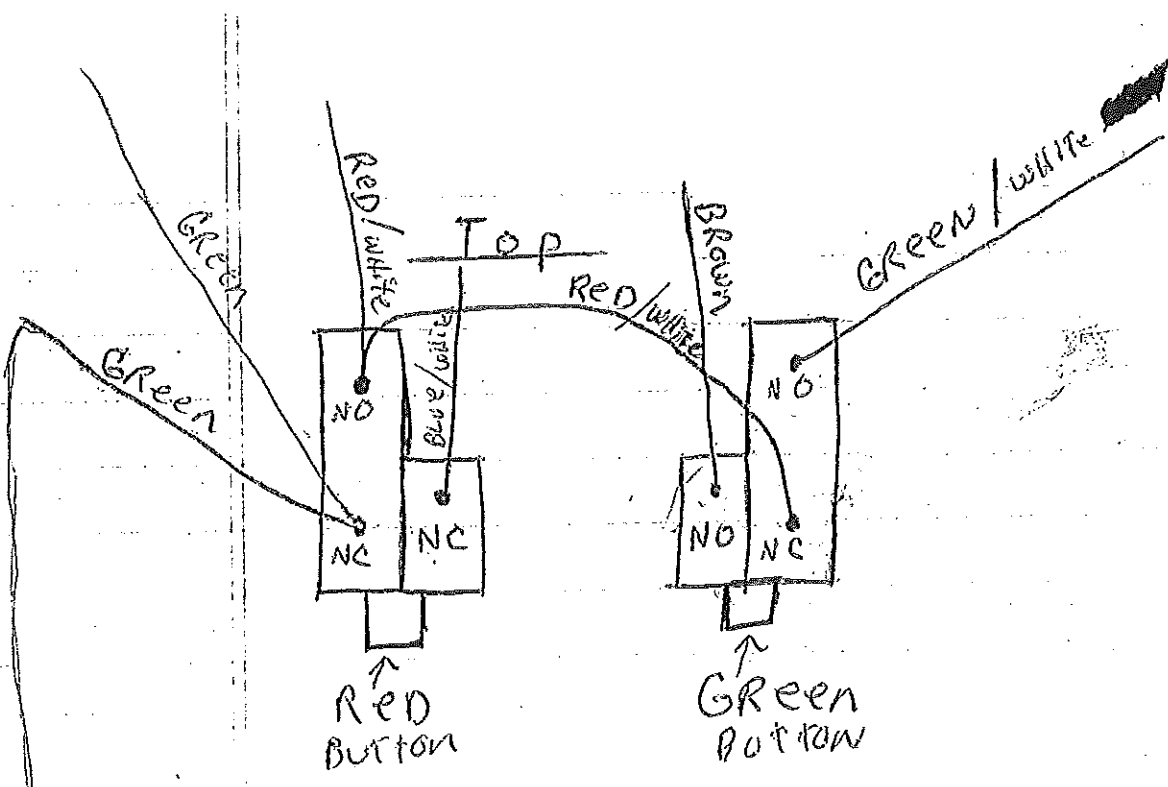 GReen
GReen
ReD/wHite
TOP
BLUe/wHite
ReD/wHite
BROwn
GReeN/wHITe
NO
NC
NC
NO
NC
NO
ReD
BuTTon
GReen
BoTToN